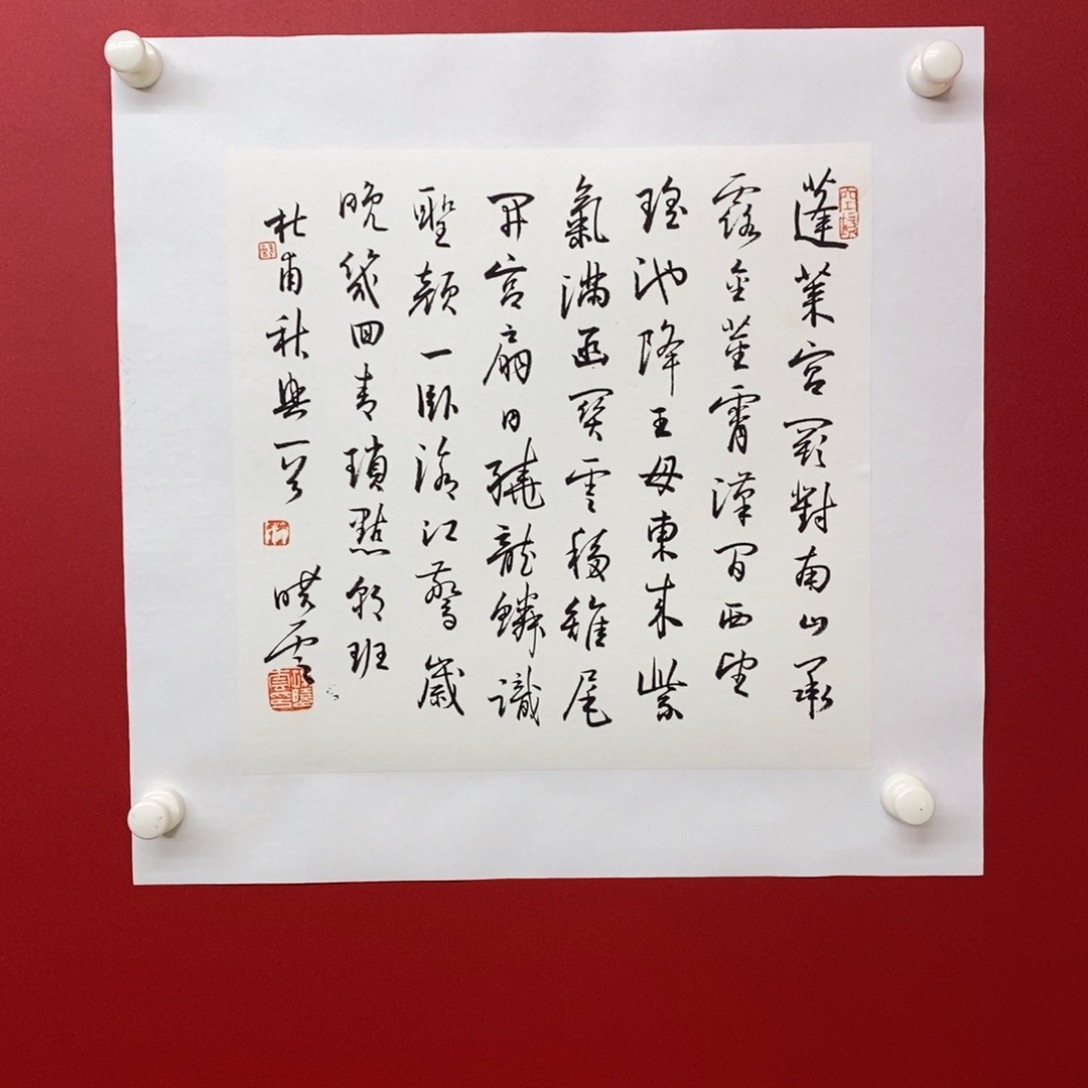 蓬莱宮闕對南山承
露金莖霄漢間西望
瑤池降王母東來紫
氣滿函關雲移雉尾
開宮扇日繞龍鱗識
聖顏一臥滄江驚歲
晚幾回青瑣點朝班
杜甫秋興一首
暎雲